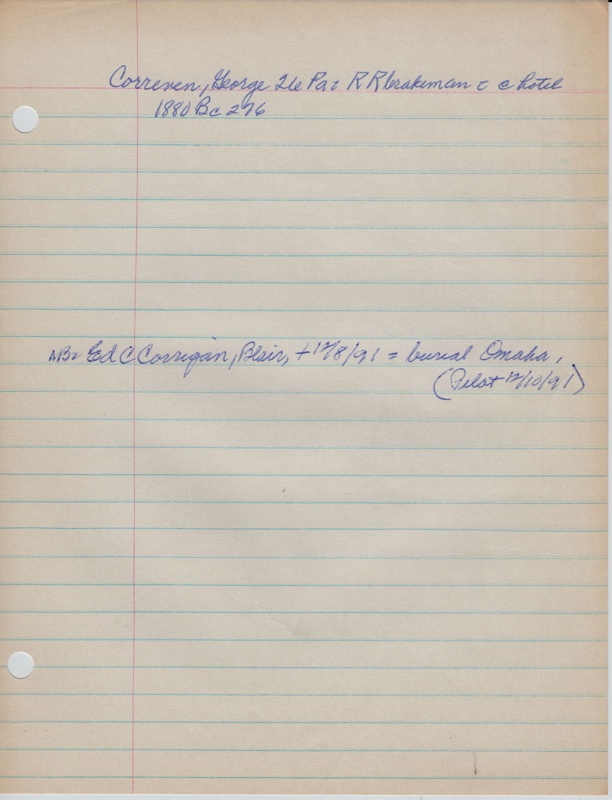 Correven, George 26 Pa = RR brakeman = c hotel
1880 Bc 276
NB = Ed C Corrigan, Blair, + 12/8/91 = burial Omaha,
(Pilot 12/10/91)